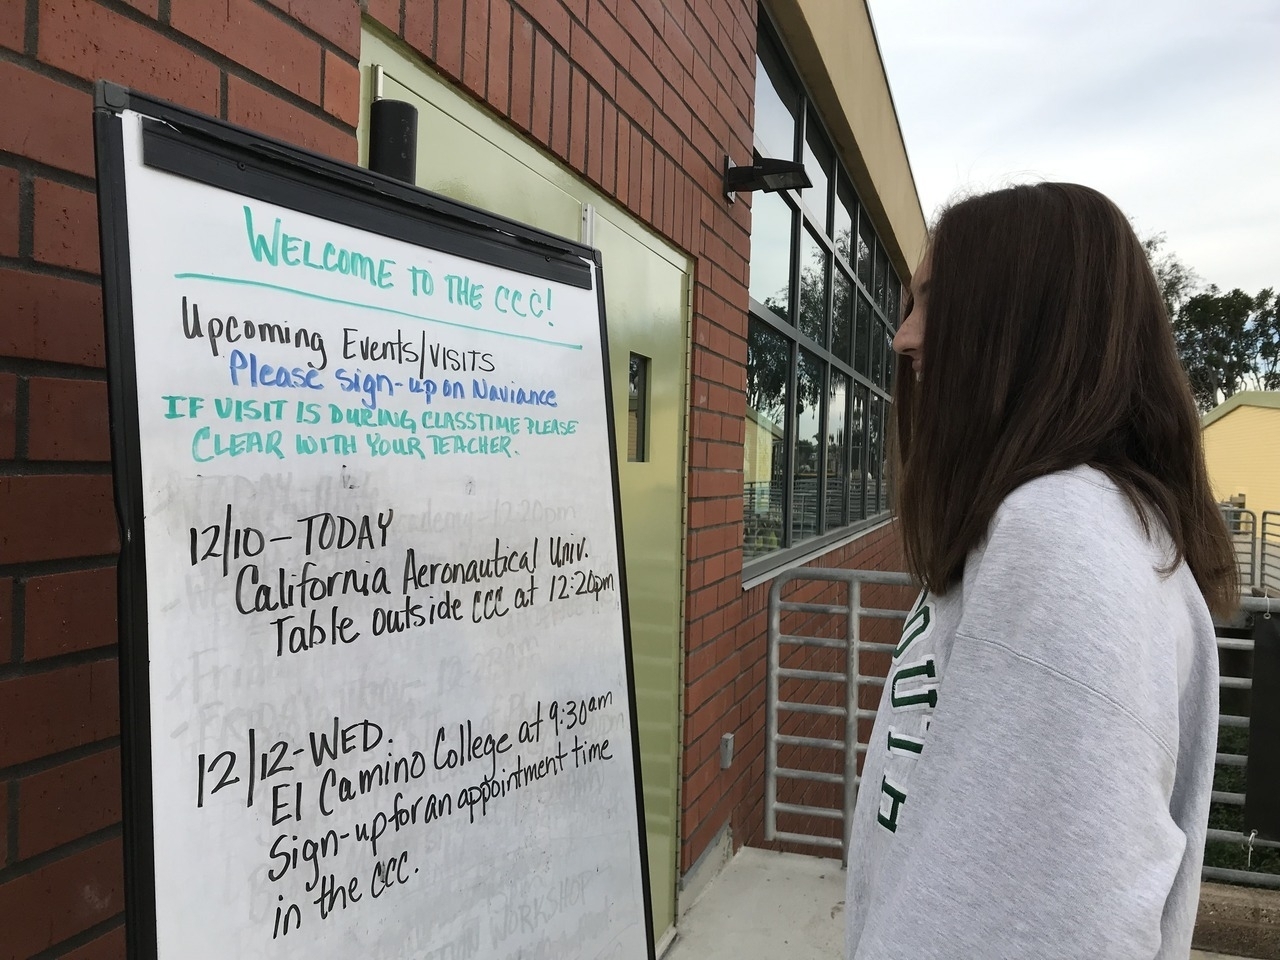 WELCOME TO THE CCC!
Upcoming Events/VISITS
Please sign-up on Naviance
IF VISIT IS DURING CLASSTIME PLEASE
CLEAR WITH YOUR TEACHER.
12/10-TODAY
California Aeronautical Univ.
Table outside CCC at 12:20pm
12/12-WED.
El Camino College at 9:30am
Sign-up for an appointment time
in the CCC.